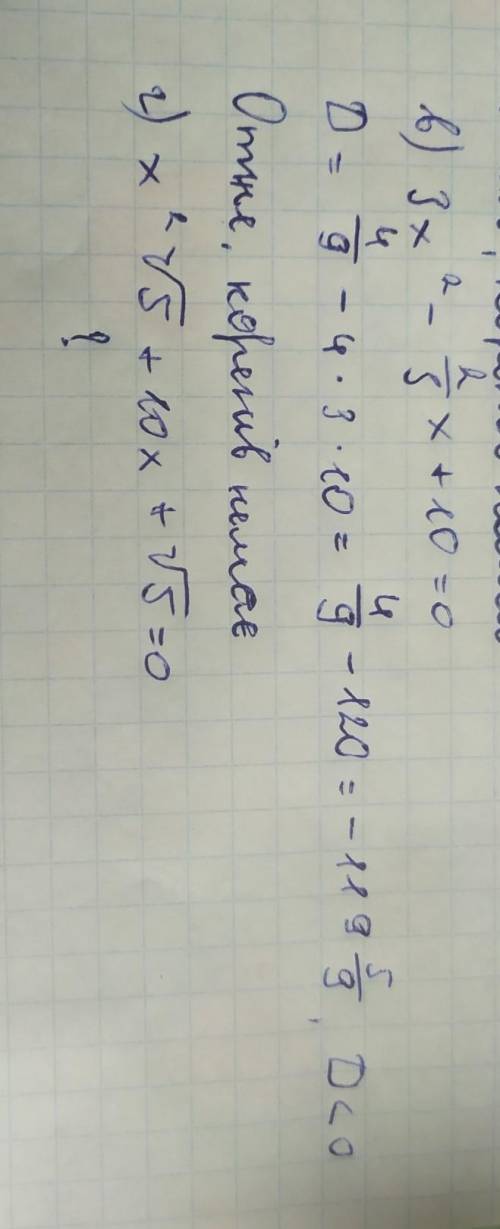 в) 3x² - 2/5 x + 10 = 0
D = 4/9 - 4 · 3 · 10 = 4/9 - 120 = -119 5/9, D < 0
Отже, коренів немає
г) x²√5 + 10x + √5 = 0
?